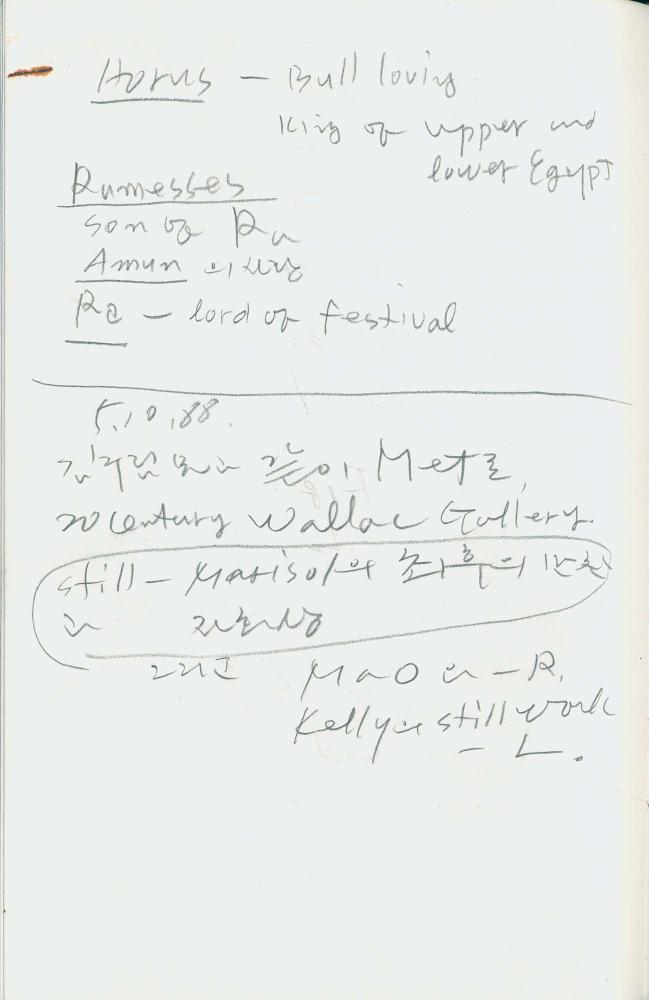 Horus – Bull loving
King of upper and
lower Egypt
Ramesses
son of Ra
Amun 의 사랑
Ra – lord of festival
5.10.88.
같이 Met로,
20 century Wallac Gallery.
still – Marisol의 최후의 만찬
과 자화상
그리고 Mao
Kelly still work
– L.